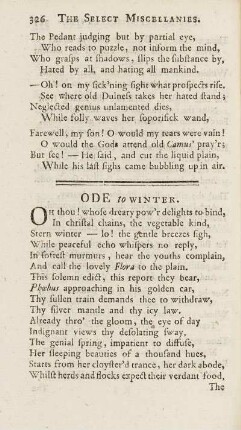 326 THE SELECT MISCELLANIES.
The Pedant judging but by partial eye,
Who reads to puzzle, not inform the mind,
Who grasps at shadows, slips the substance by,
Hated by all, and hating all mankind.
— Oh! on my sick'ning sight what prospects rise,
See where old Dulness takes her hated stand;
Neglected genius unlamented dies,
While folly waves her soporifick wand,
Farewell, my son! O would my tears were vain!
O would the Gods attend old Camus' pray'r;
But see! — He said, and cut the liquid plain,
While his last sighs came bubbling up in air.
ODE to WINTER.
OH thou! whose dreary pow'r delights to bind,
In christal chains, the vegetable kind,
Stern winter — lo! the gentle breezes sigh,
While peaceful echo whispers no reply,
In softest murmurs, hear the youths complain,
And call the lovely Flora to the plain.
This solemn edict, this report they bear,
Phœbus approaching in his golden car,
Thy sullen train demands thee to withdraw,
Thy silver mantle and thy icy law.
Already thro' the gloom, the eye of day
Indignant views thy desolating sway.
The genial spring, impatient to diffuse,
Her sleeping beauties of a thousand hues,
Starts from her cloyster'd trance, her dark abode,
Whilst herds and flocks expect their verdant food,
The